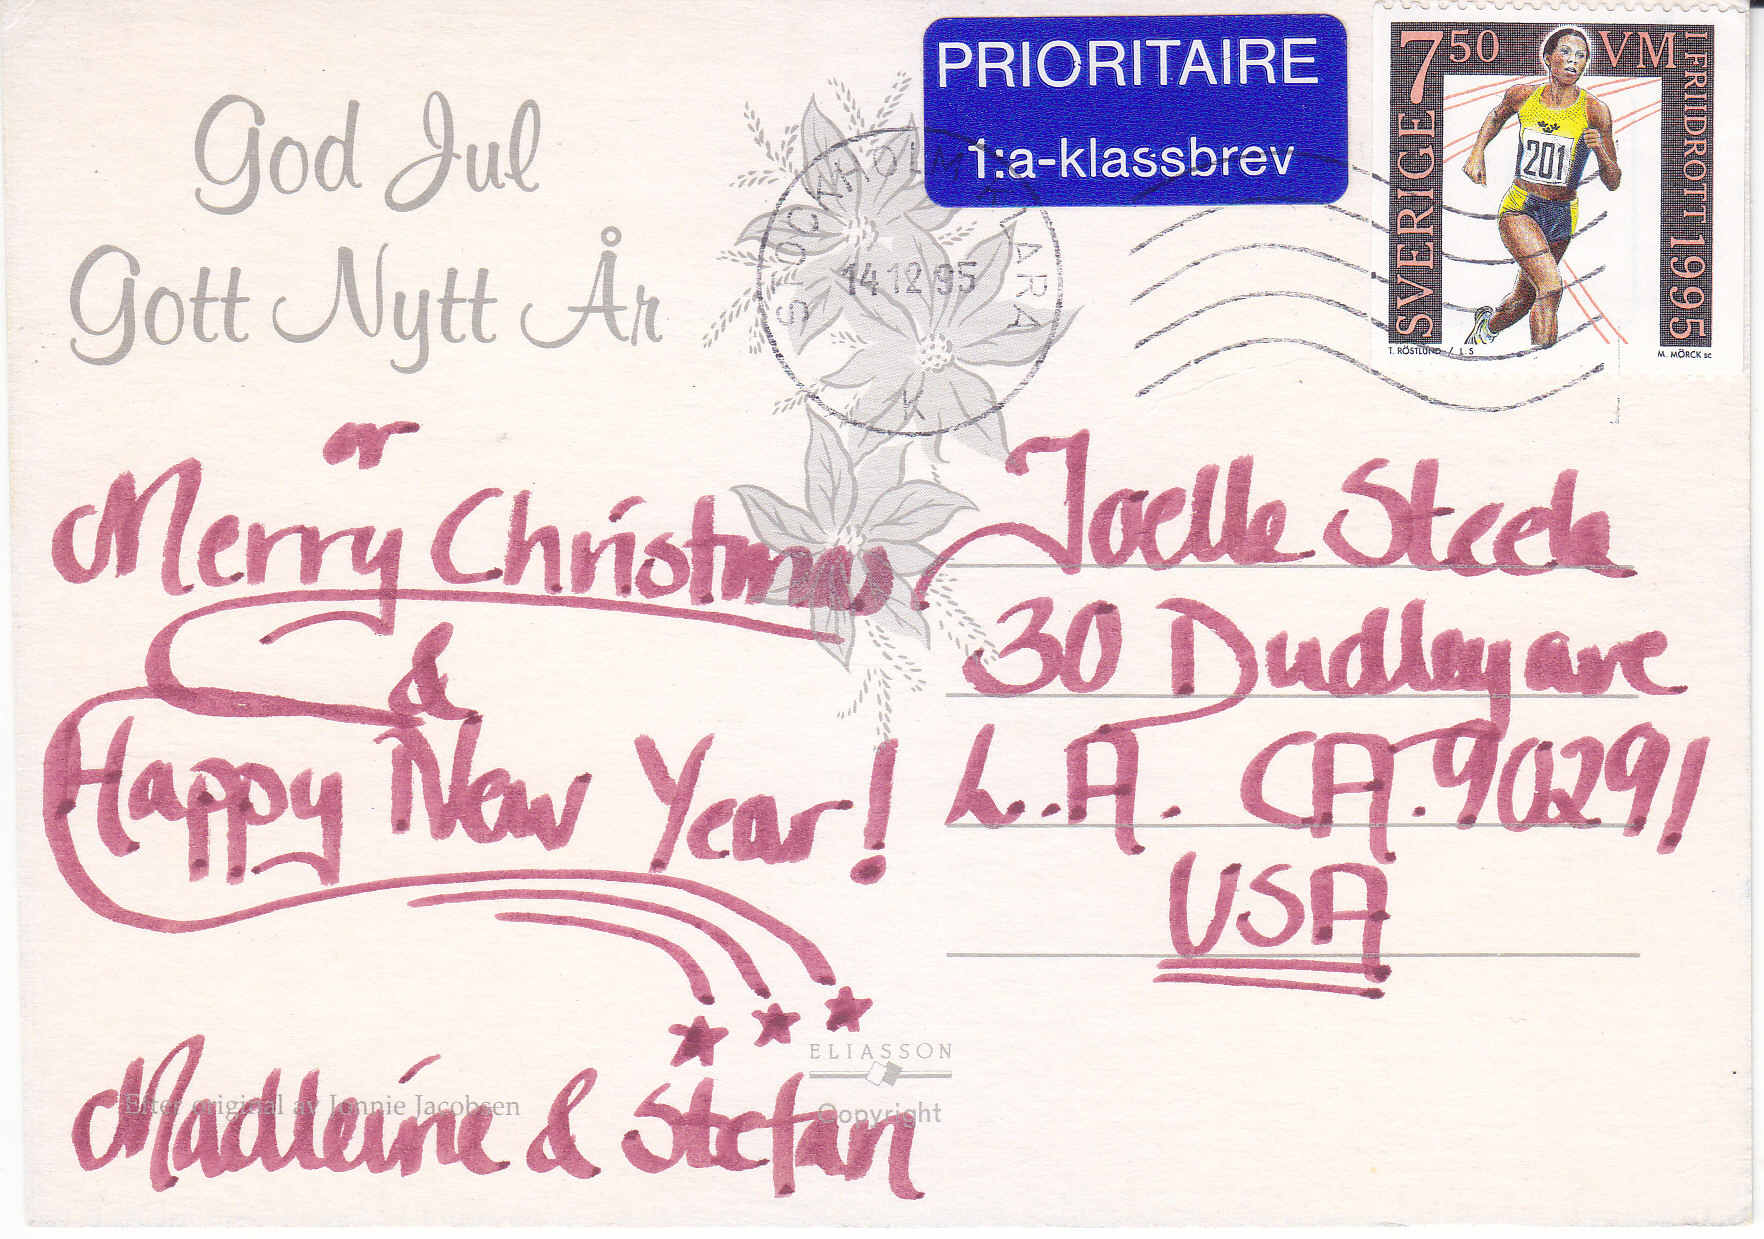 God Jul
Gott Nytt År
or
Merry Christmas
&
Happy New Year!
Madleine & Stefan
Efter original av Jonnie Jacobsen
ELIASSON
Copyright
PRIORITAIRE
1:a-klassbrev
STOCKHOLM KLARA
14 12 95
K
SVERIGE 7 50 VM I FRIIDROTT 1995
201
T. RÖSTLUND / L.S
M. MÖRCK sc
Joelle Steele
30 Dudley ave
L.A. CA. 90291
USA